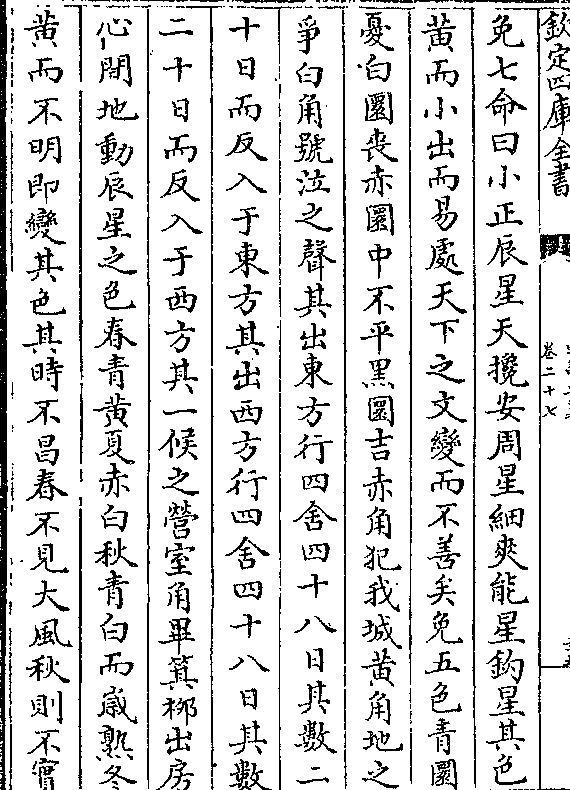 欽定四庫全書
卷二十七
免七命曰小正辰星天攙安周星細爽能星鈎星其色
黄而小出而易處天下之文變而不善矣免五色青圜
憂白圜喪赤圜中不平黑圜吉赤角犯我城黄角地之
爭白角號泣之聲其出東方行四舍四十八日其數二
十日而反入于東方其出西方行四舍四十八日其數
二十日而反入于西方其一候之營室角畢箕桺出房
心間地動辰星之色春青黄夏赤白秋青白而嵗熟冬
黄而不明即變其色其時不昌春不見大風秋則不實